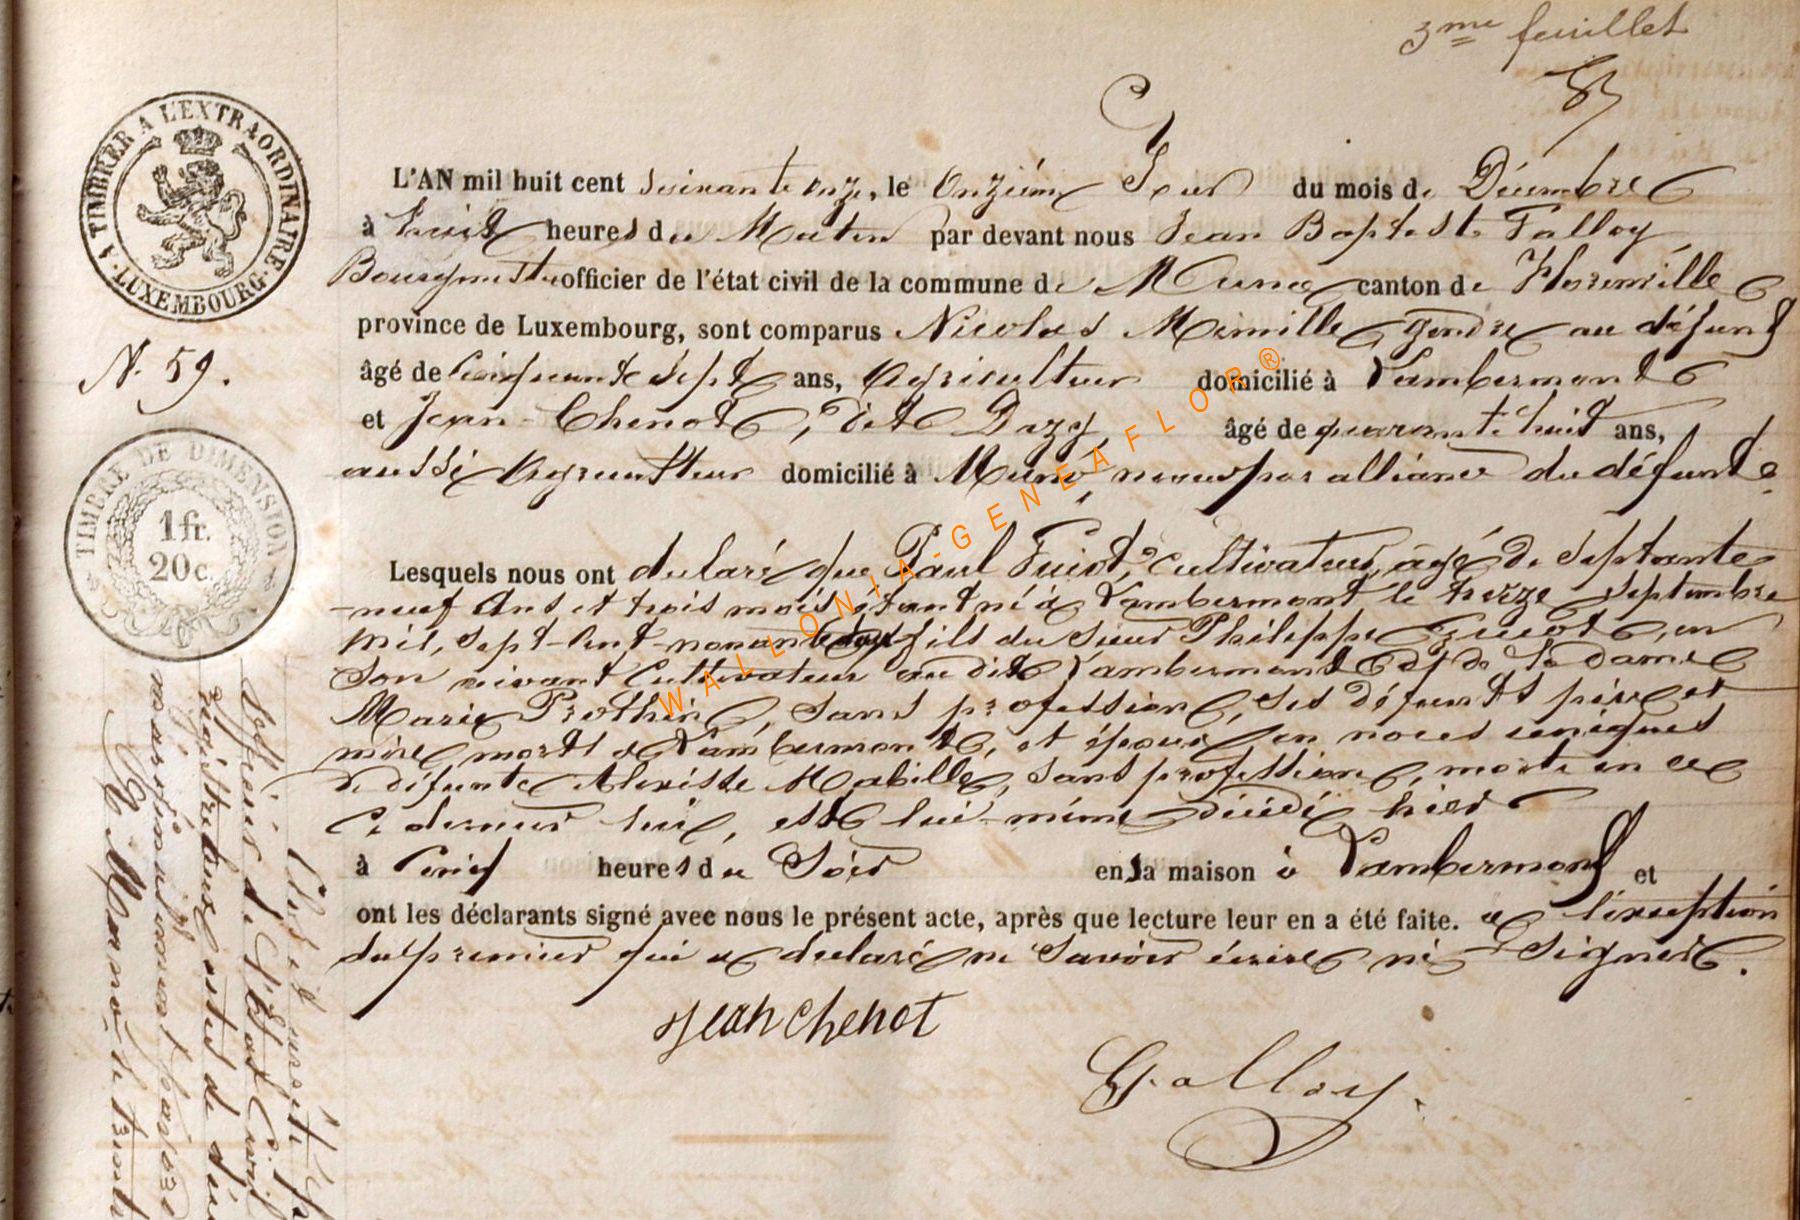 3me feuillet
A TIMBRER A L'EXTRAORDINAIRE
LUXEMBOURG
L'AN mil huit cent soixante onze, le onzième Jour du mois de Décembre
à huit heures du Matin par devant nous Jean Baptiste Falloy
Bourgmestre officier de l'état civil de la commune de Muno canton de Florenville
province de Luxembourg, sont comparus Nicolas Mernille gendre au défunt
N. 59.
âgé de Cinquante sept ans, Agriculteur domicilié à Lambermont
et Jean Chenot, dit Dazy, âgé de quarante huit ans,
aussi Agriculteur domicilié à Muno, neveu par alliance du défunt.
TIMBRE DE DIMENSION
1 fr.
20 c.
Lesquels nous ont déclaré que Paul Guiot, cultivateur, âgé de septante
-neuf Ans et trois mois, étant né à Lambermont le treize septembre
mil, sept-Cent-nonante deux fils du sieur Philippe Guiot, en
son vivant Cultivateur au dit Lambermont et de la dame
Marie Prothin, sans profession, ses défunts père et
mère, morts à Lambermont, et époux en noces uniques
de défunte Alexisse Mabille, sans profession, morte en ce
Ce dernier lieu, est lui-même décédé hier
à Cinq heures du Soir en sa maison à Lambermont et
ont les déclarants signé avec nous le présent acte, après que lecture leur en a été faite. à l'exception
du premier qui a déclaré ne savoir écrire ni signer.
Jean chenot
Falloy.
Clos et arrêté
officier de l'Etat Civil
registre aux actes de
marginalement
A Muno, le trente
WALLONIA-GENEAFLOR®